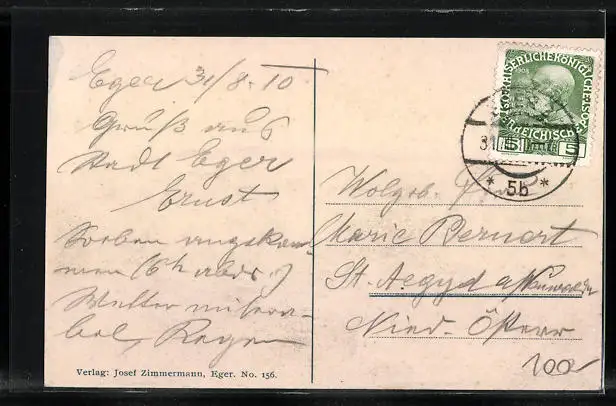 Eger 31/8. 10
Gruß aus
Stadt Eger
Ernst
Soeben angekom
men (6 h abds.)
Wetter misera-
bel, Regen
Verlag: Josef Zimmermann, Eger. No. 156.
KAISERLICHE KÖNIGLICHE ÖSTERREICHISCHE
1908
5 5
31
* 5b *
Wolgeb.
Marie Bernert
St. Aegyd a/Neuwalde
Nied. Österr
100